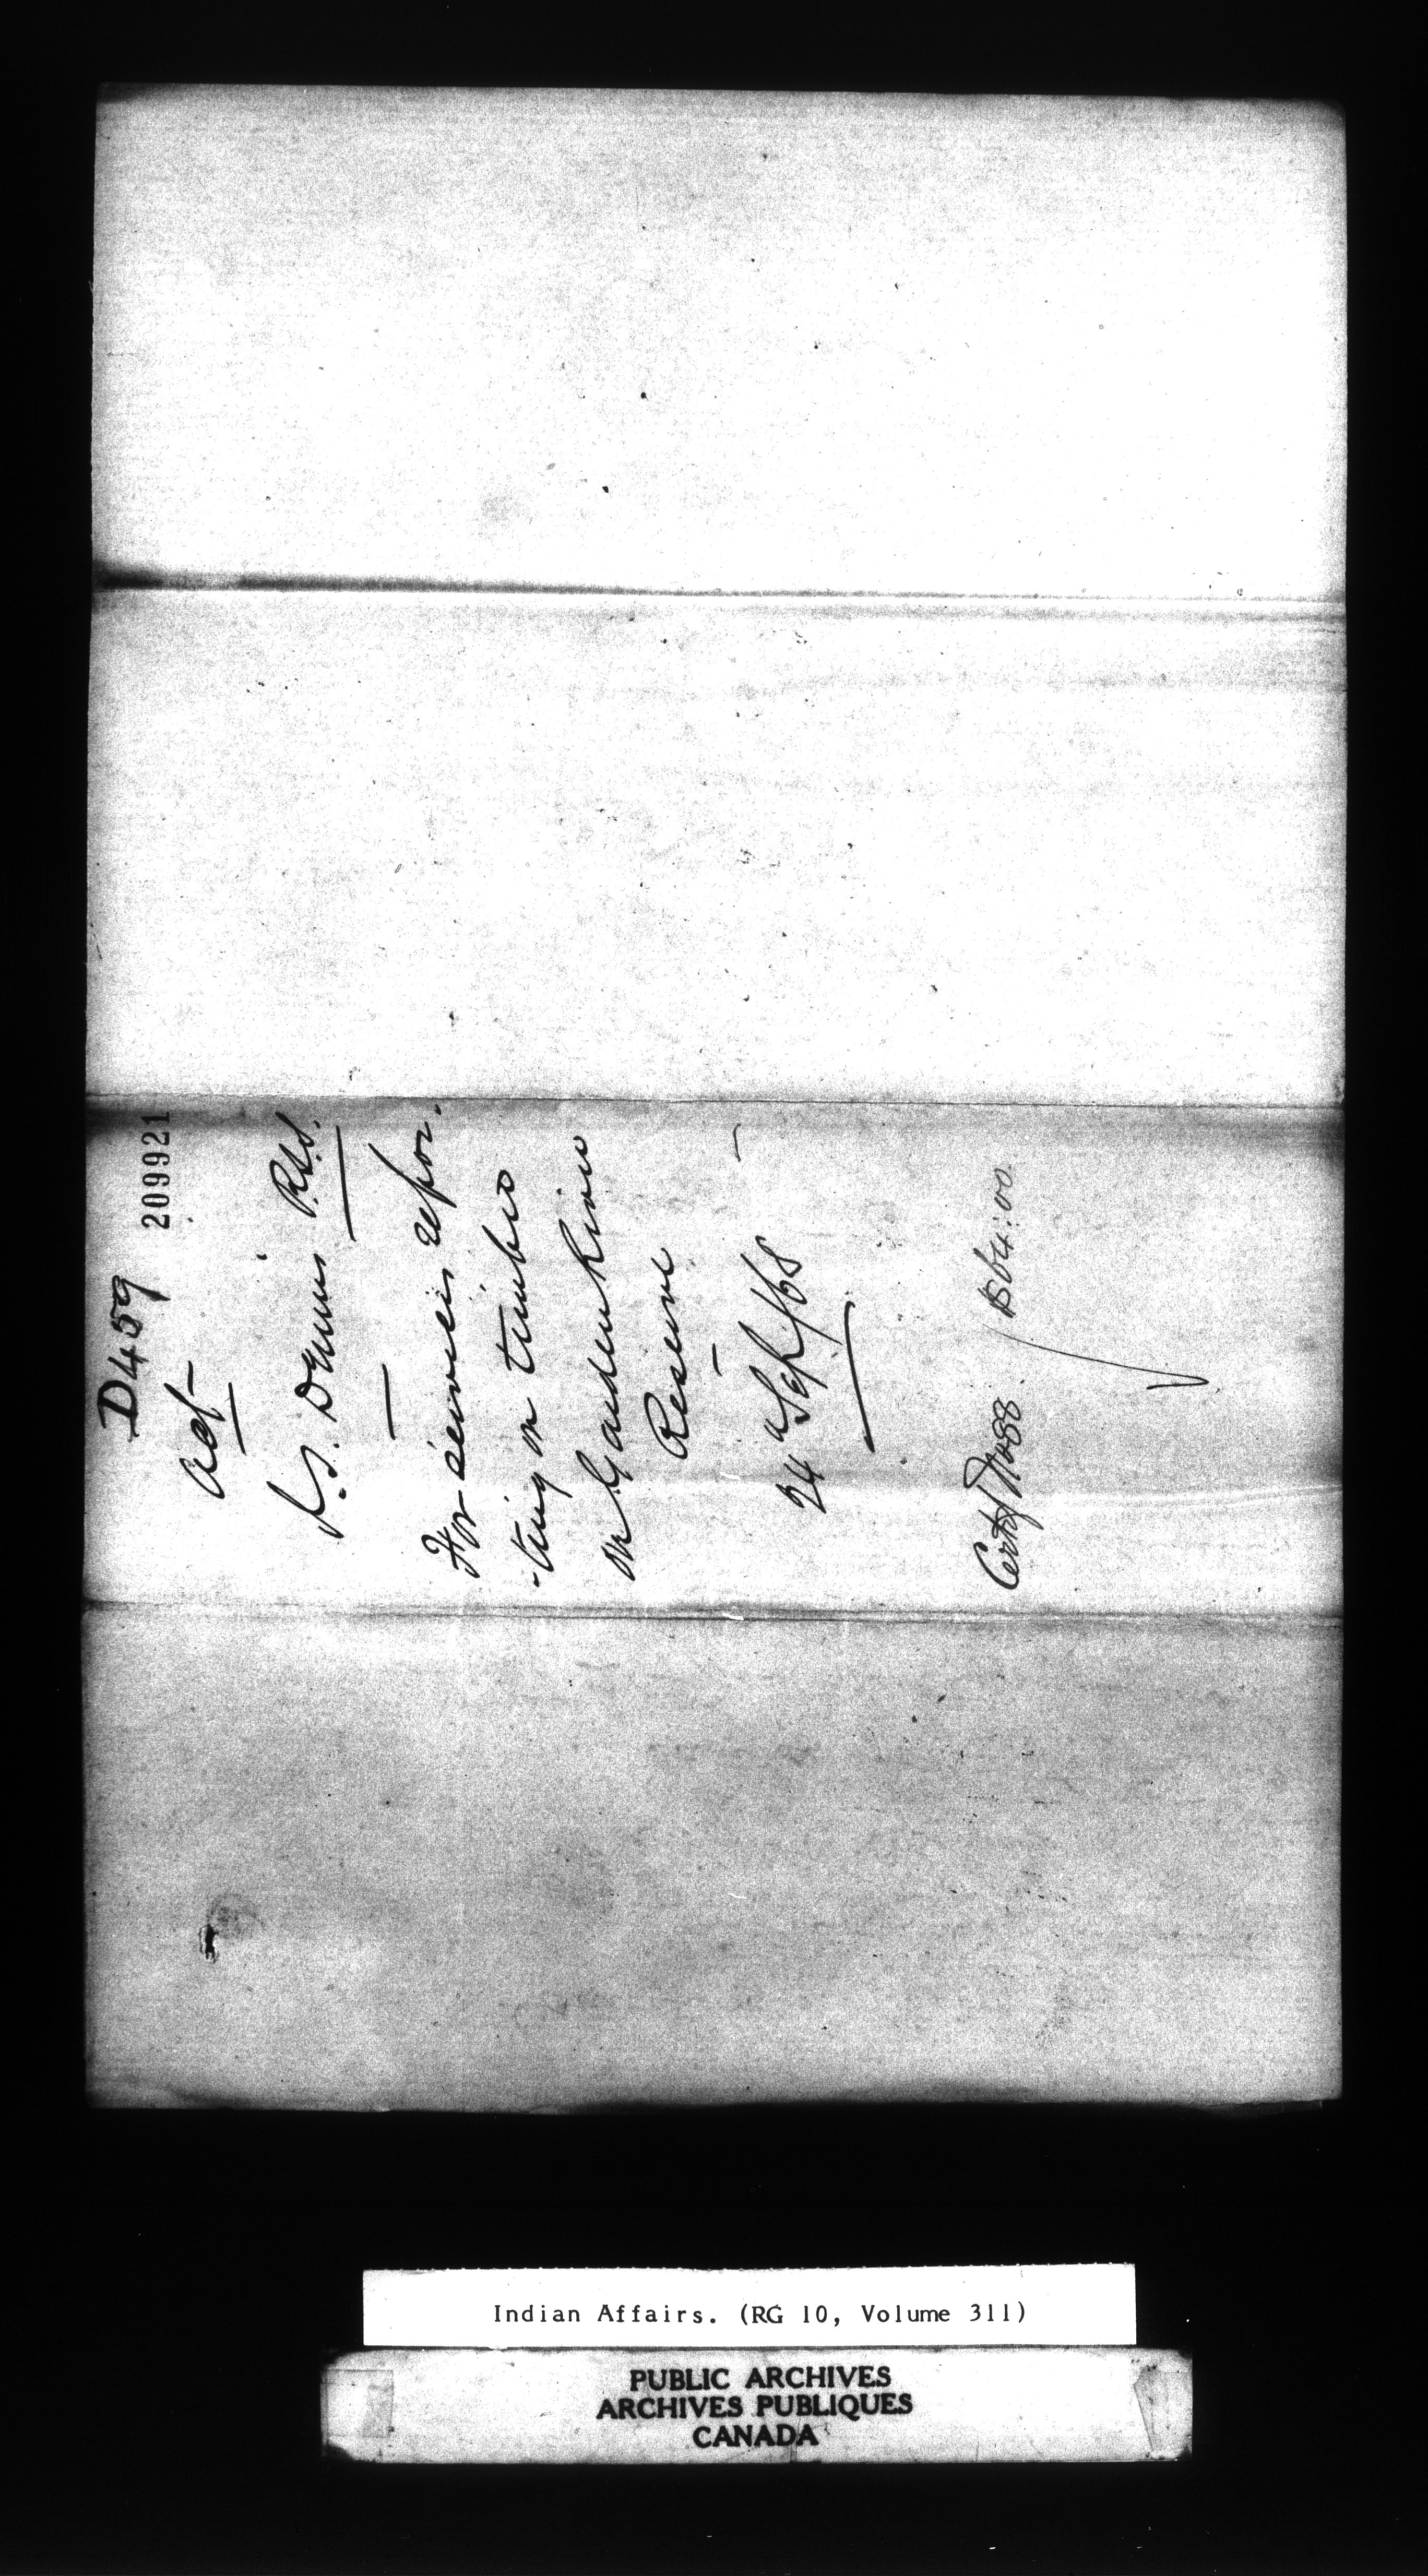 D459
209921
act
J.S. Dennis P.L.S.
For services repor-
-ting on timber
on Garden River
Reserve
24 Sept/68
Certif No 88. $64:00
Indian Affairs. (RG 10, Volume 311)
PUBLIC ARCHIVES
ARCHIVES PUBLIQUES
CANADA